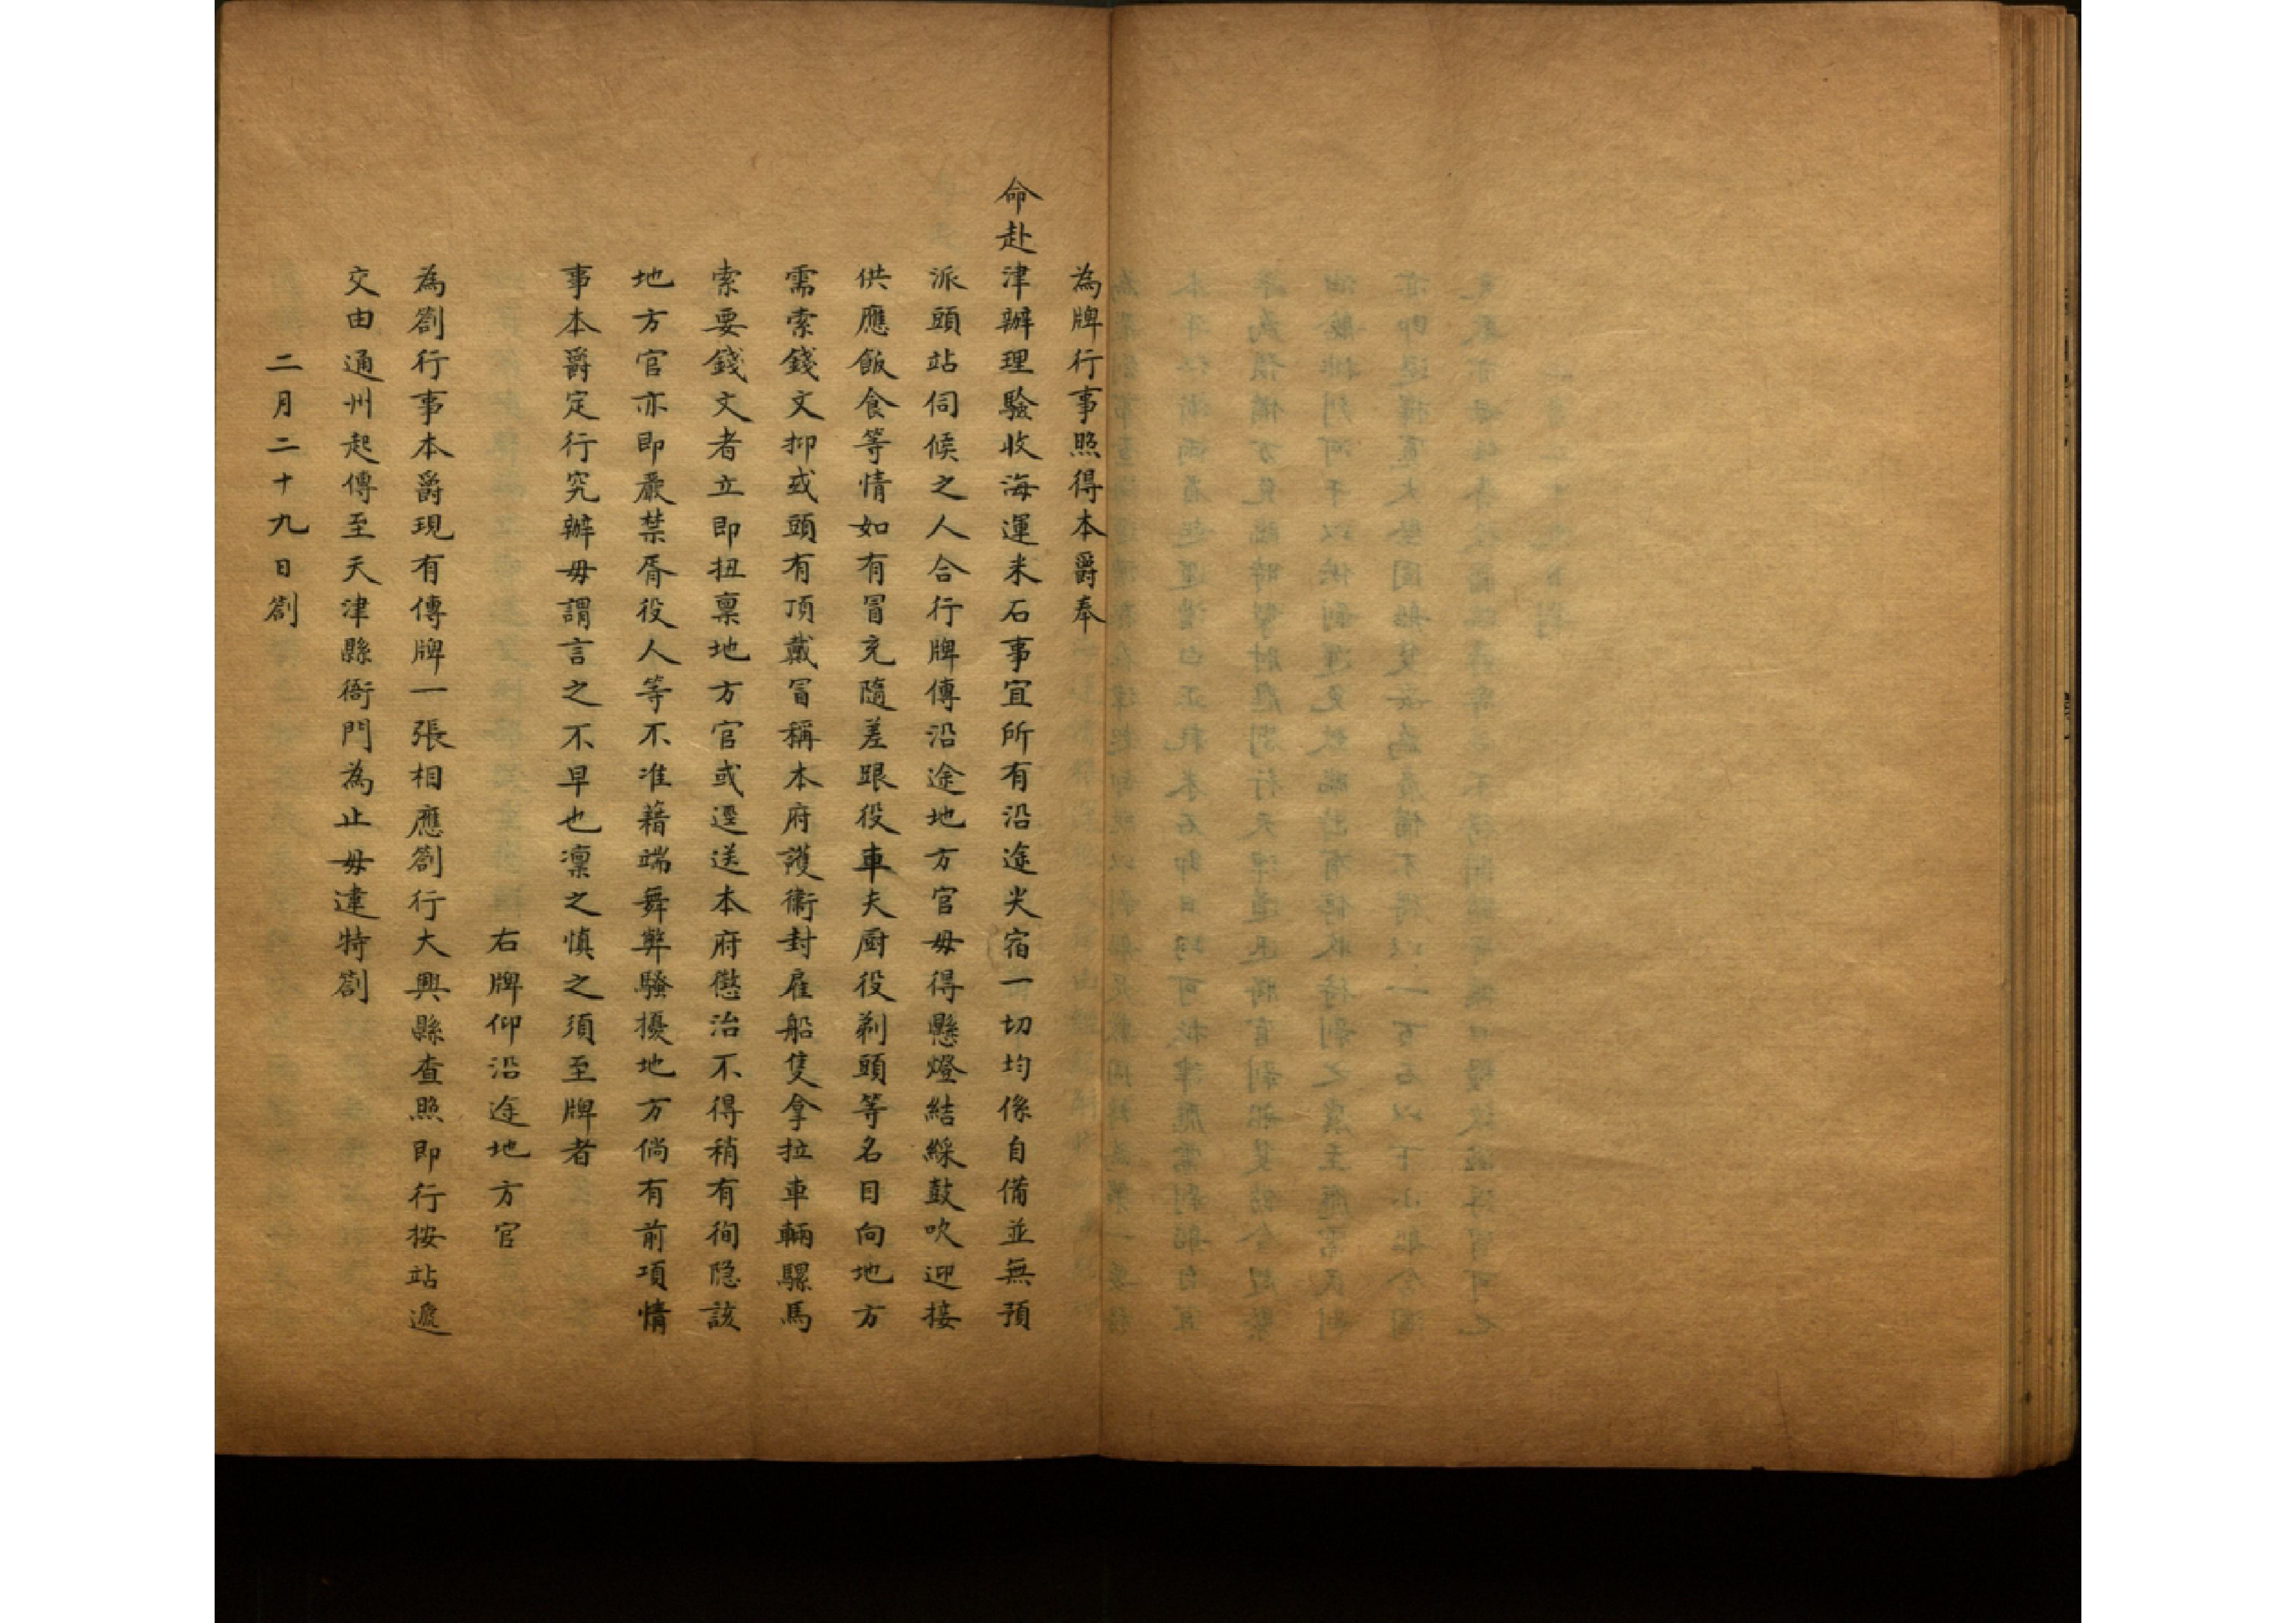 為牌行事照得本爵奉
命赴津辦理驗收海運米石事宜所有沿途尖宿一切均係自備並無預
派頭站伺候之人合行牌傳沿途地方官毋得懸燈結綵鼓吹迎接
供應飯食等情如有冒充隨差跟役車夫厨役剃頭等名目向地方
需索錢文抑或頭有頂戴冒稱本府護衛封雇船隻拿拉車輛騾馬
索要錢文者立即扭稟地方官或逕送本府懲治不得稍有徇隐該
地方官亦即嚴禁胥役人等不准藉端舞弊騷擾地方倘有前項情
事本爵定行究辦毋謂言之不早也凜之慎之須至牌者
右牌仰沿途地方官
為劄行事本爵現有傳牌一張相應劄行大興縣查照即行按站遞
交由通州起傳至天津縣衙門為止毋違特劄
二月二十九日劄